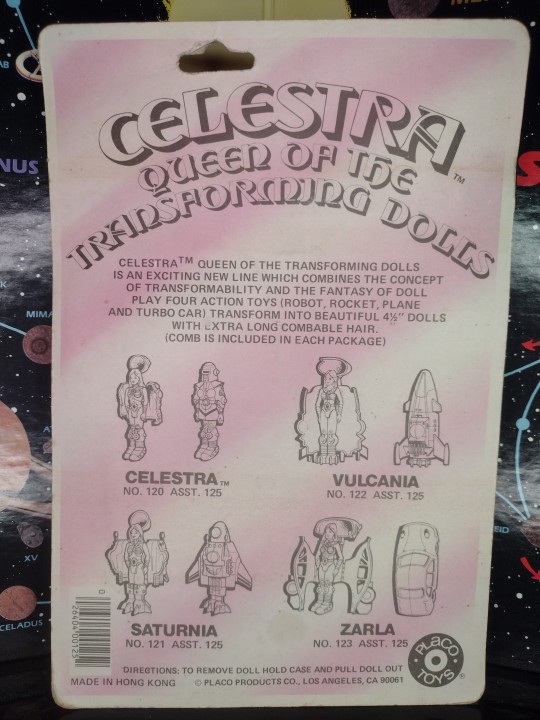 CELESTRA
QUEEN OF THE
TRANSFORMING DOLLS
TM
CELESTRA™ QUEEN OF THE TRANSFORMING DOLLS
IS AN EXCITING NEW LINE WHICH COMBINES THE CONCEPT
OF TRANSFORMABILITY AND THE FANTASY OF DOLL
PLAY FOUR ACTION TOYS (ROBOT, ROCKET, PLANE
AND TURBO CAR) TRANSFORM INTO BEAUTIFUL 4½" DOLLS
WITH EXTRA LONG COMBABLE HAIR.
(COMB IS INCLUDED IN EACH PACKAGE)
CELESTRA™
NO. 120 ASST. 125
VULCANIA
NO. 122 ASST. 125
SATURNIA
NO. 121 ASST. 125
ZARLA
NO. 123 ASST. 125
PLACO
TOYS
®
0
26404 00125
DIRECTIONS: TO REMOVE DOLL HOLD CASE AND PULL DOLL OUT
MADE IN HONG KONG © PLACO PRODUCTS CO., LOS ANGELES, CA 90061
NUS
MIMA
XV
CELADUS
EID